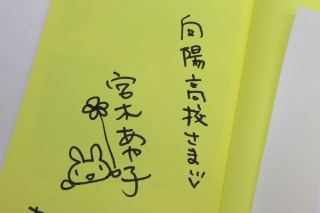 向陽高校さま
宮木あや子